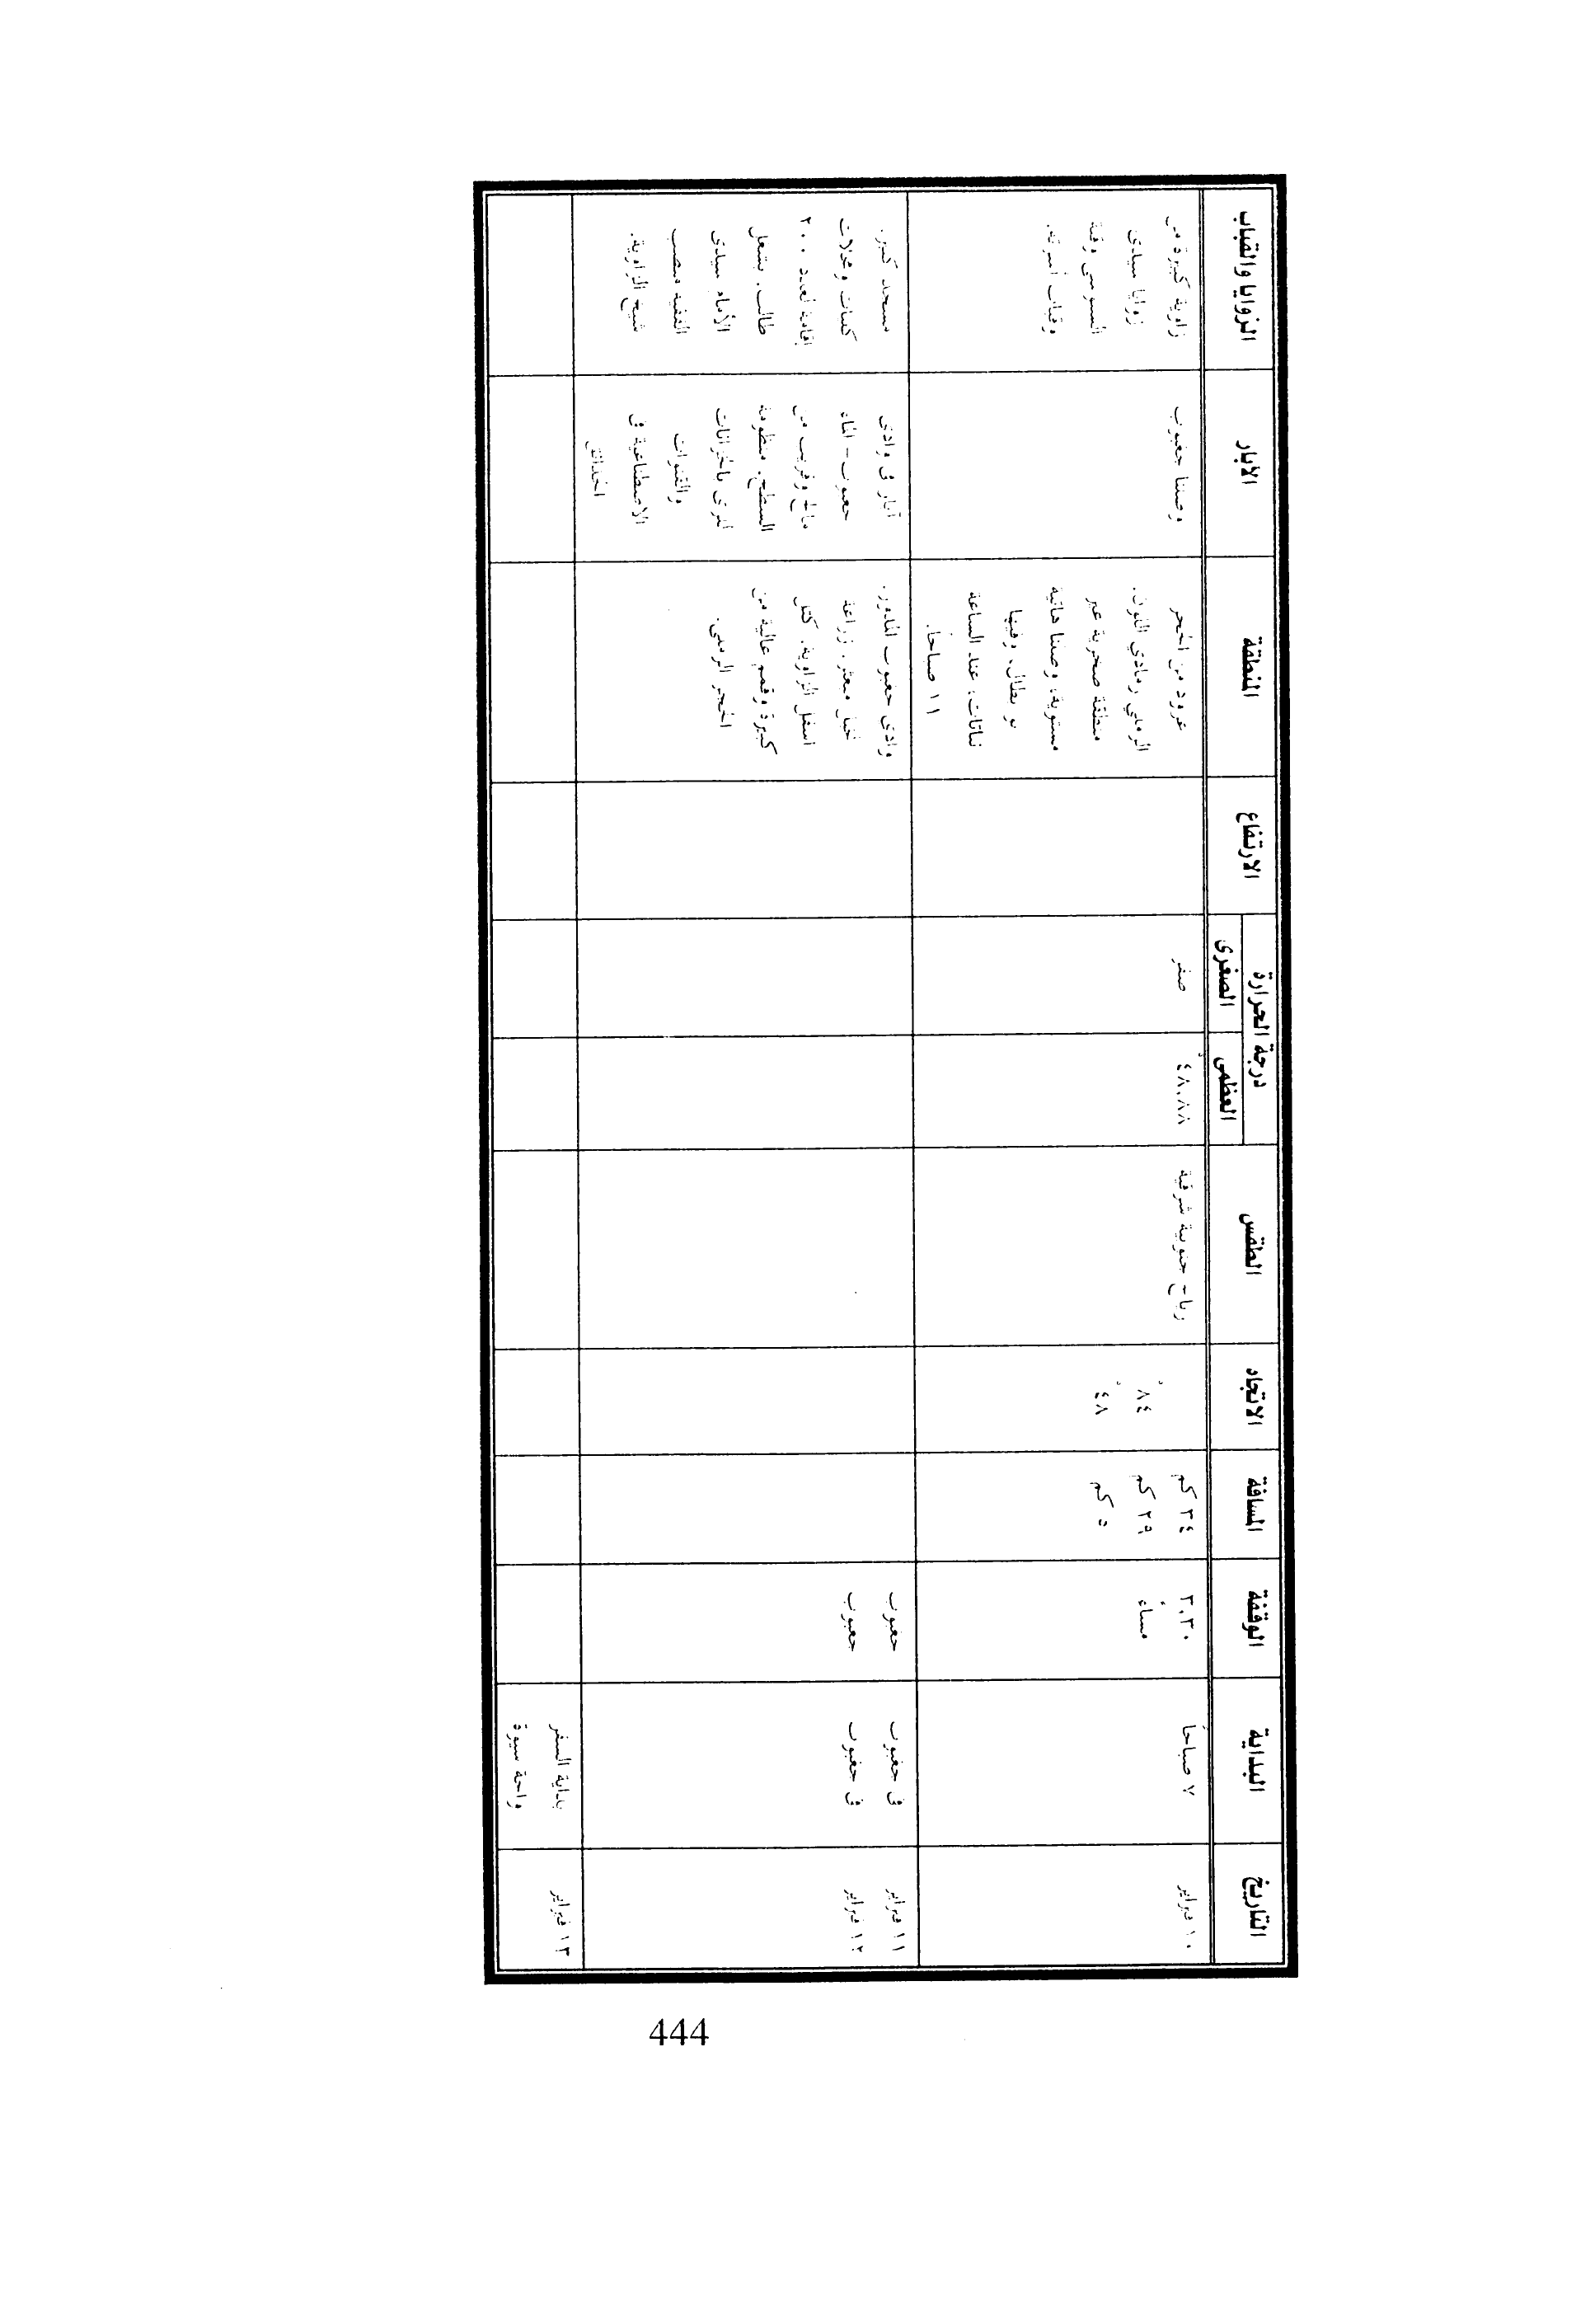 التاريخ
البداية
الوقفة
المسافة
الاتجاه
الطقس
درجة الحرارة
العظمى
الصغرى
الارتفاع
المنطقة
الآبار
الزوايا والقباب
١٠ فبراير
٧ صباحاً
٣.٣٠
مساءً
٣٤ كم
٢٩ كم
٥ كم
٨٤°
٤٨°
رياح جنوبية شرقية
٤٨.٨٨°
صفر
غرود من الحجر
الرملي رمادي اللون.
منطقة صخرية غير
مستوية، وصلنا هاتية
بو بطال، وفيها
نباتات، عند الساعة
١١ صباحاً.
وصلنا جغبوب
زاوية كبيرة من
زوايا سيدى
السنوسي وقبة
وقباب أسرته.
١١ فبراير
١٢ فبراير
فى جغبوب
فى جغبوب
جغبوب
جغبوب
وادى جغبوب المدور.
نخيل مبعثر. زراعة
أسفل الزاوية. كتل
كبيرة وقمم عالية من
الحجر الرملى.
آبار فى وادى
جغبوب - الماء
مالح وقريب من
السطح. منظومة
لرى بالخزانات
والقنوات
الاصطناعية فى
الحدائق
مسجد كبير.
كتبات ومحلات
إقامة لعدد ٢٠٠
طالب. يشغل
الأمام سيدى
الفقيه منصب
شيخ الزاوية.
١٣ فبراير
بداية السفر
واحة سيوة
444